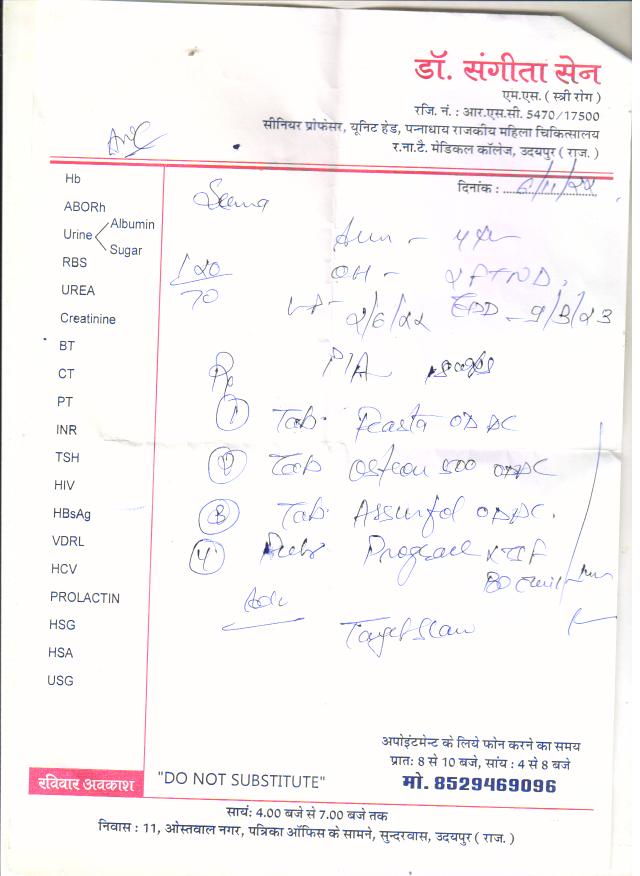 डॉ. संगीता सेन
एम.एस. ( स्त्री रोग )
रजि. नं. : आर.एस.सी. 5470/17500
सीनियर प्रोफेसर, यूनिट हेड, पन्नाधाय राजकीय महिला चिकित्सालय
र.ना.टै. मेडिकल कॉलेज, उदयपुर ( राज. )
ANC
दिनांक : 6/11/22
Hb
ABORh
Urine Albumin
Sugar
RBS
UREA
Creatinine
BT
CT
PT
INR
TSH
HIV
HBsAg
VDRL
HCV
PROLACTIN
HSG
HSA
USG
Seema
120/70
OH - 2 FTND,
2/6/22 EDD - 9/3/23
P/A
Rx
1 Tab.
2 Tab 500
3 Tab.
4
Adv
Target Scan
अपोइंटमेन्ट के लिये फोन करने का समय
प्रातः 8 से 10 बजे, सांय : 4 से 8 बजे
मो. 8529469096
रविवार अवकाश
"DO NOT SUBSTITUTE"
सायं: 4.00 बजे से 7.00 बजे तक
निवास : 11, ओस्तवाल नगर, पत्रिका ऑफिस के सामने, सुन्दरवास, उदयपुर ( राज. )